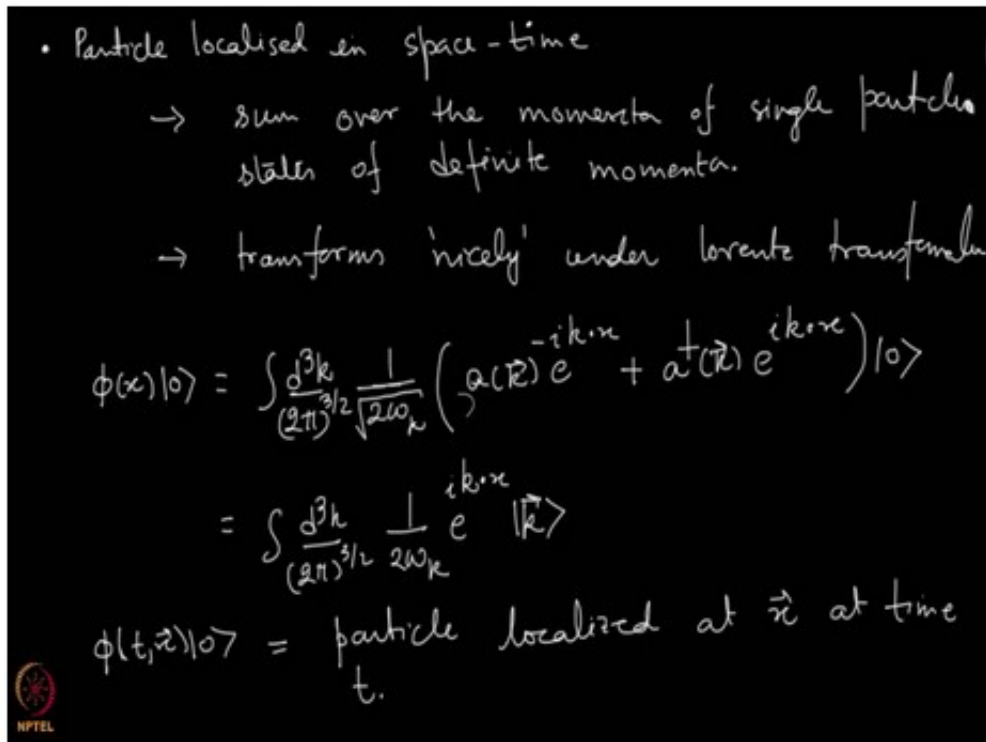 • Particle localised in space-time
→ sum over the momenta of single particle
states of definite momenta.
→ transforms 'nicely' under lorentz
ϕ(x)|0⟩ = ∫ d³k/(2π)^{3/2} 1/√(2ω_k) (a(k⃗) e^{-ik·x} + a†(k⃗) e^{ik·x}) |0⟩
= ∫ d³k/(2π)^{3/2} 1/2ω_k e^{ik·x} |k⃗⟩
ϕ(t,x⃗)|0⟩ = particle localized at x⃗ at time
t.
NPTEL